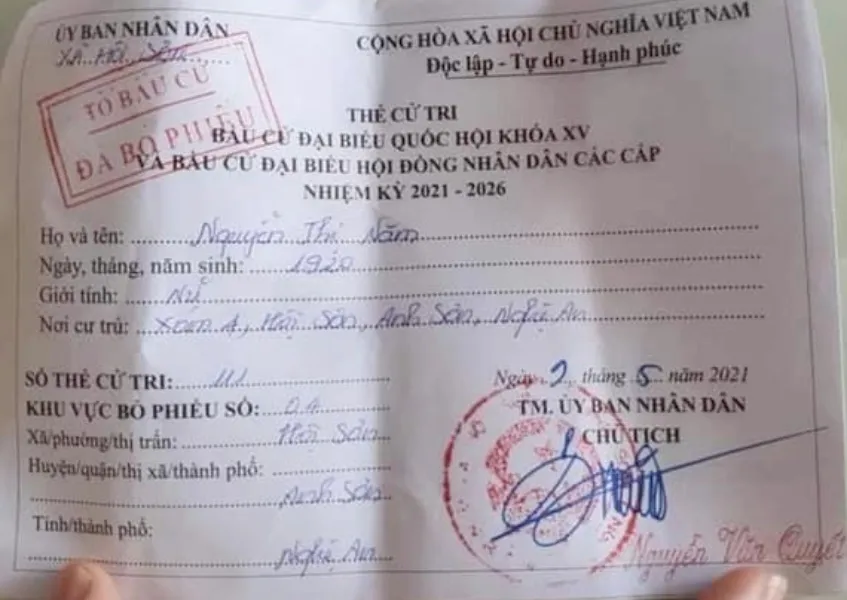 ỦY BAN NHÂN DÂN
XÃ HỘI SƠN
CỘNG HÒA XÃ HỘI CHỦ NGHĨA VIỆT NAM
Độc lập - Tự do - Hạnh phúc
TỔ BẦU CỬ
ĐÃ BỎ PHIẾU
THẺ CỬ TRI
BẦU CỬ ĐẠI BIỂU QUỐC HỘI KHÓA XV
VÀ BẦU CỬ ĐẠI BIỂU HỘI ĐỒNG NHÂN DÂN CÁC CẤP
NHIỆM KỲ 2021 - 2026
Họ và tên: Nguyễn Thị Năm
Ngày, tháng, năm sinh: 1920
Giới tính: Nữ
Nơi cư trú: Xóm 4, Hội Sơn, Anh Sơn, Nghệ An
SỐ THẺ CỬ TRI: 111
KHU VỰC BỎ PHIẾU SỐ: 04
Xã/phường/thị trấn: Hội Sơn
Huyện/quận/thị xã/thành phố:
Anh Sơn
Tỉnh/thành phố:
Nghệ An
Ngày 2 tháng 5 năm 2021
TM. ỦY BAN NHÂN DÂN
CHỦ TỊCH
Nguyễn Văn Quyết